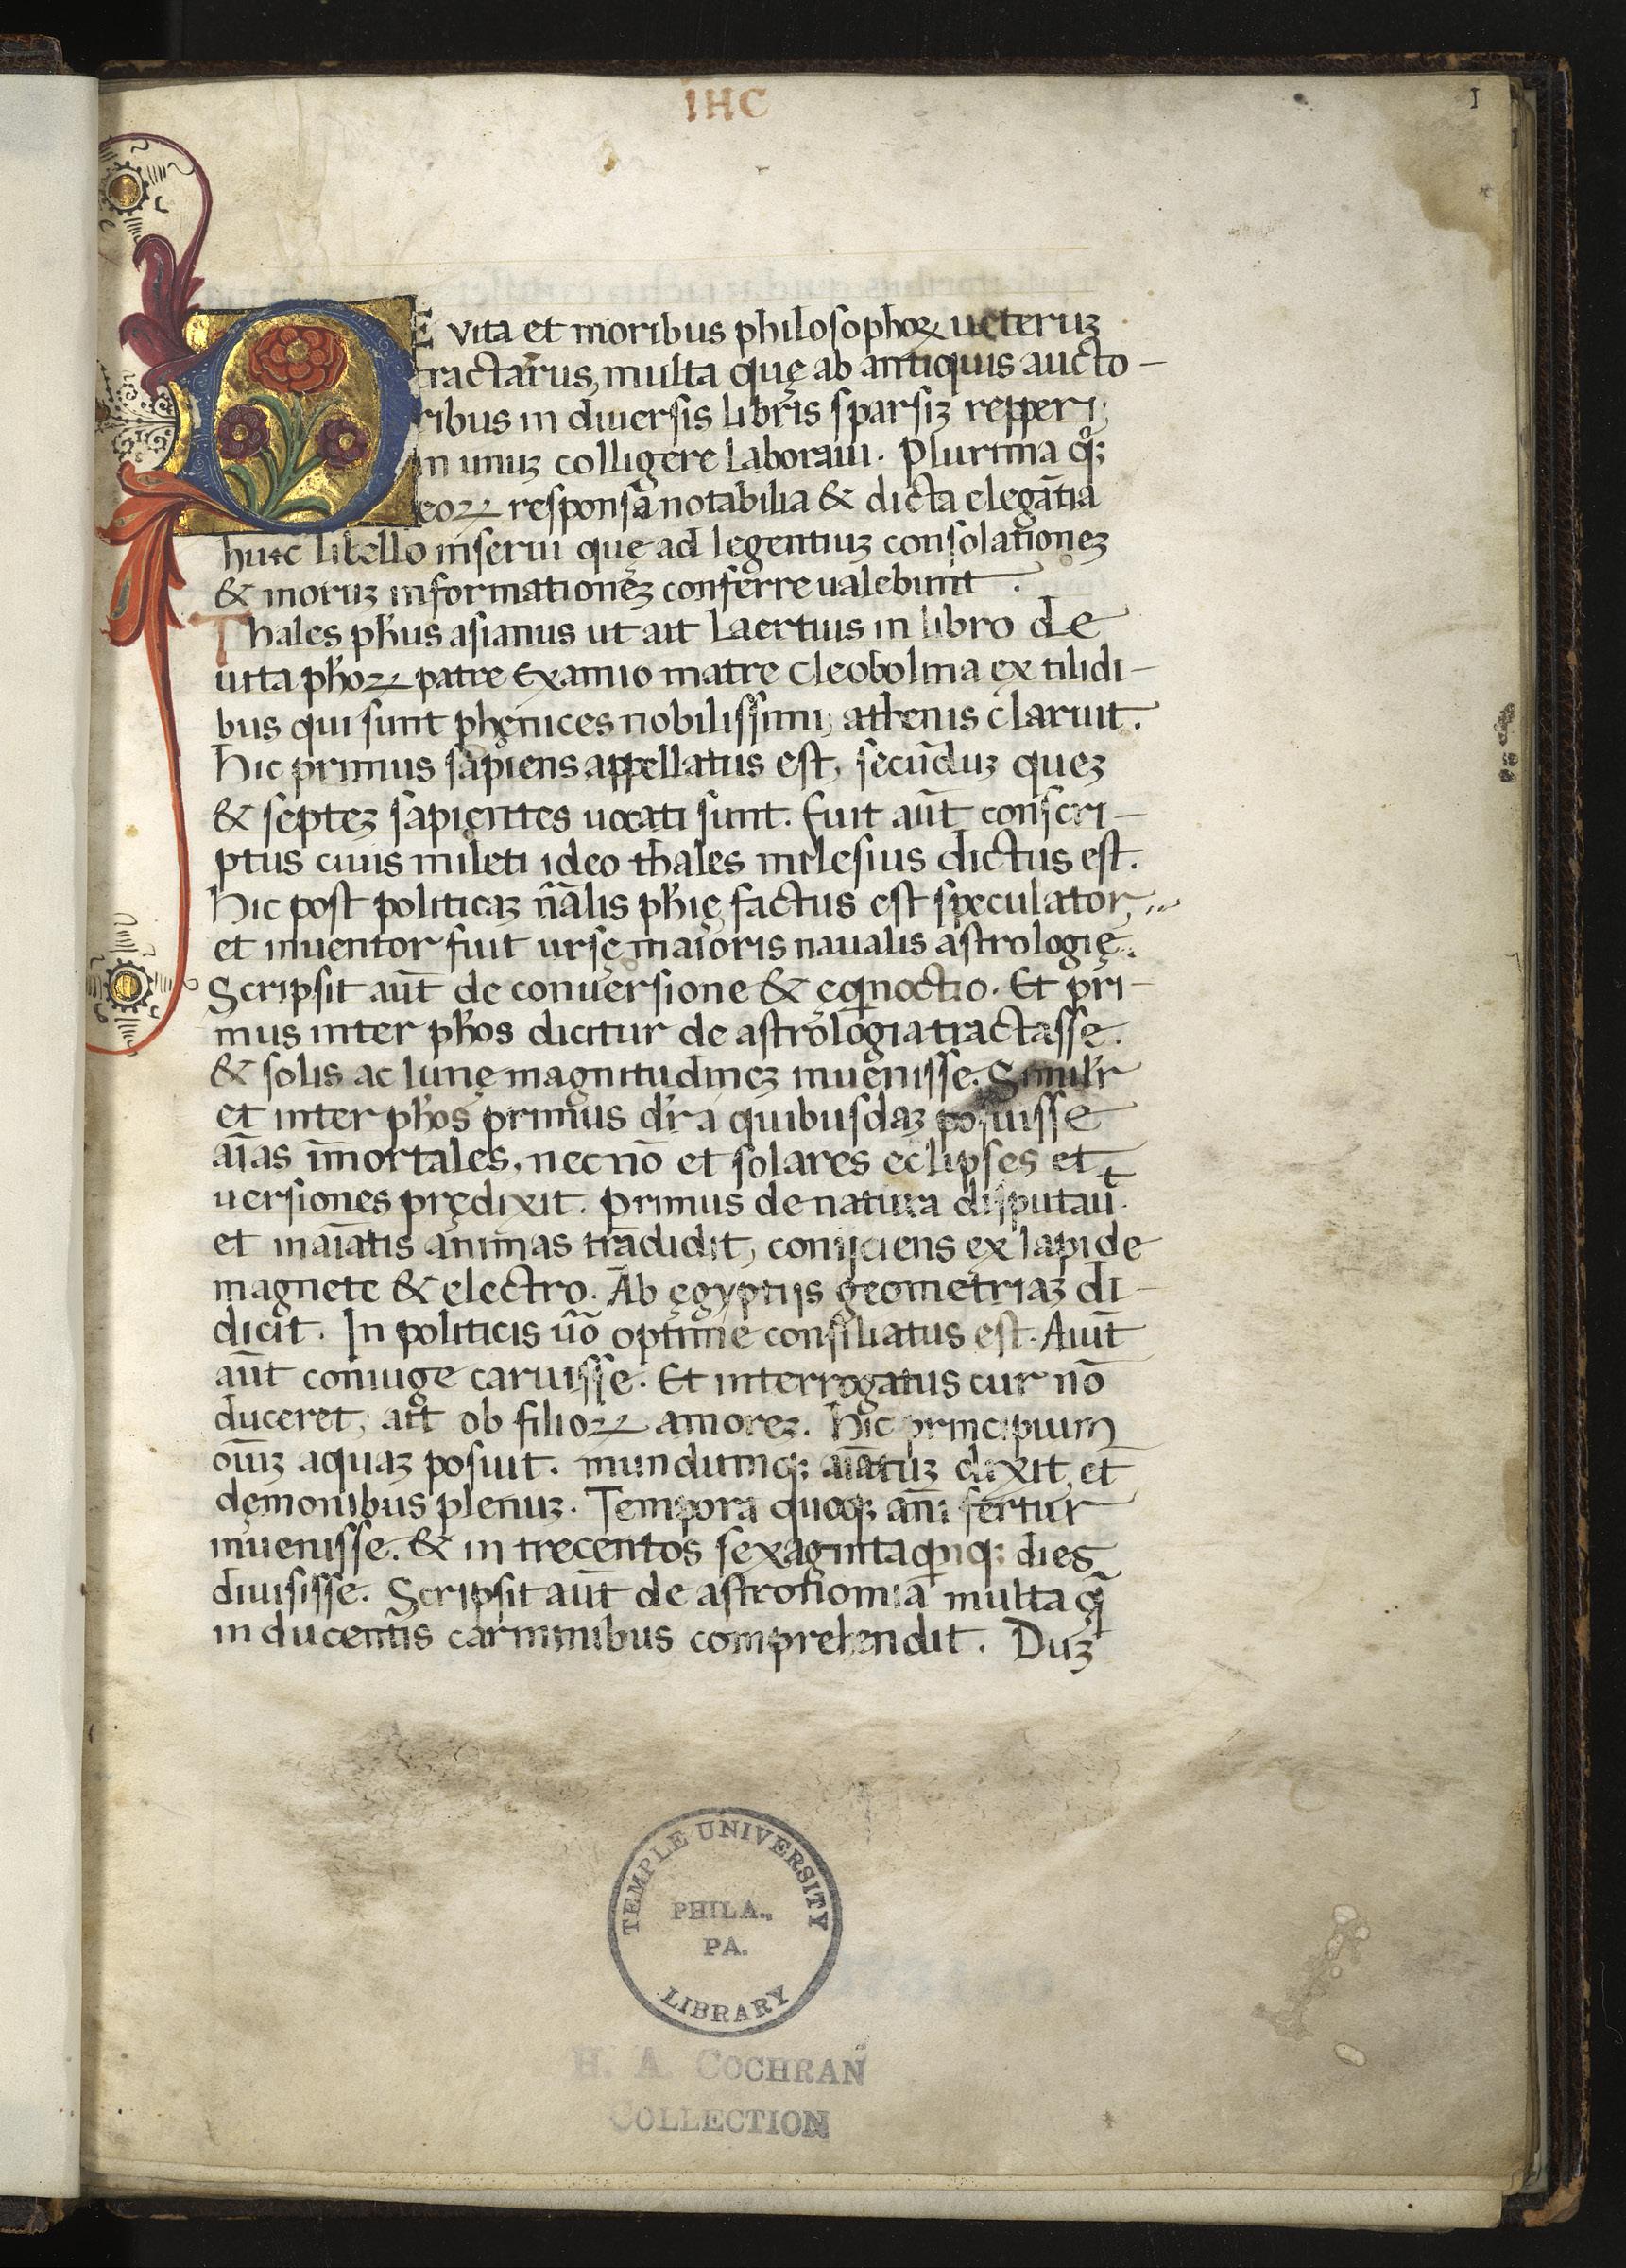 IHC
1
DE vita et moribus philosophoꝝ ueteruꝫ
tractaturus, multa quę ab antiquis aucto-
ribus in diuersis libris sparsiꝫ repperi;
in unuꝫ colligere laboraui. Plurima qͦꝫ
eoꝝ responsa notabilia & dicta elegātia
huic libello inserui quę ad legentiuꝫ consolationeꝫ
& moruꝫ informationeꝫ conferre ualebunt.
Thales ph̄us asianus ut ait Laertius in libro de
uita ph̄oꝝ patre Examio matre Cleobolina ex tilidi-
bus qui sunt phęnices nobilissimi, athenis claruit.
Hic primus sapiens appellatus est, secūduꝫ queꝫ
& septeꝫ sapientes uocati sunt. fuit aūt conscri-
ptus ciuis mileti ideo thales milesius dictus est.
Hic post politicaꝫ nāālis ph̄ię factus est speculator,
et inuentor fuit ursę maioris naualis astrologię.
Scripsit aūt de conuersione & ęqͥnoctio. Et pri-
mus inter ph̄os dicitur de astrologia tractasse.
& solis ac lunę magnitudineꝫ inuenisse. Simil'r
et inter ph̄os primus dr̄ a quibusdaꝫ posuisse
aīas īmortales, nec nō et solares eclipses et
uersiones prędixit. Primus de natura disputauīt.
et inaīatis animas tradidit, conijciens ex lapide
magnete & electro. Ab ęgyptijs geometriaꝫ di-
dicit. In politicis ūō optime consiliatus est. Aiūt
aūt coniuge caruisse. Et interrogatus cur nō
duceret, ait ob filioꝝ amoreꝫ. Hic principium
oīuꝫ aquaꝫ posuit. mundumqꝫ aīatuꝫ dixit, et
dęmonibus plenuꝫ. Tempora quoqꝫ anni fertur
inuenisse. & in trecentos sexagintaqͥnqꝫ dies
diuisisse. Scripsit aūt de astronomia multa q̄
in ducentis carminibus comprehendit. Duꝫ
TEMPLE UNIVERSITY
PHILA.,
PA.
LIBRARY
H. A. COCHRAN
COLLECTION